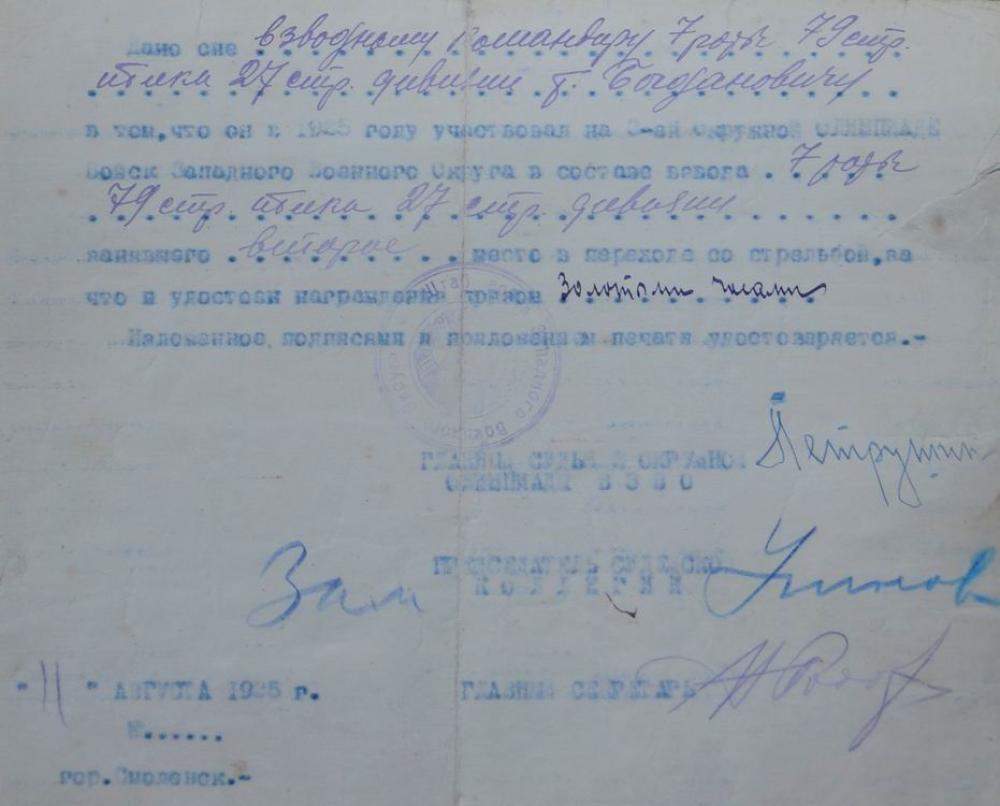 Дано сие взводному командиру 7 роты 79 стр.
полка 27 стр. дивизии т. Богдановичу
в том, что он в 1925 году участвовал на 3-ей Окружной ОЛИМПИАДЕ
Войск Западного Военного Округа в составе взвода . 7 роты
79 стр. полка 27 стр. дивизии
занявшего второе место в переходе со стрельбой, за
что и удостоен награждения призом Золотыми часами
Изложенное подписями и приложением печати удостоверяется.-
Штаб войск Западного Военного Округа
ГЛАВНЫЙ СУДЬЯ 3 ОКРУЖНОЙ
ОЛИМПИАДЫ В З В О
Зам ПРЕДСЕДАТЕЛЬ СУДЕЙСКОЙ
КОЛЛЕГИИ
"11" АВГУСТА 1925 г. ГЛАВНЫЙ СЕКРЕТАРЬ
№......
гор.Смоленск.-